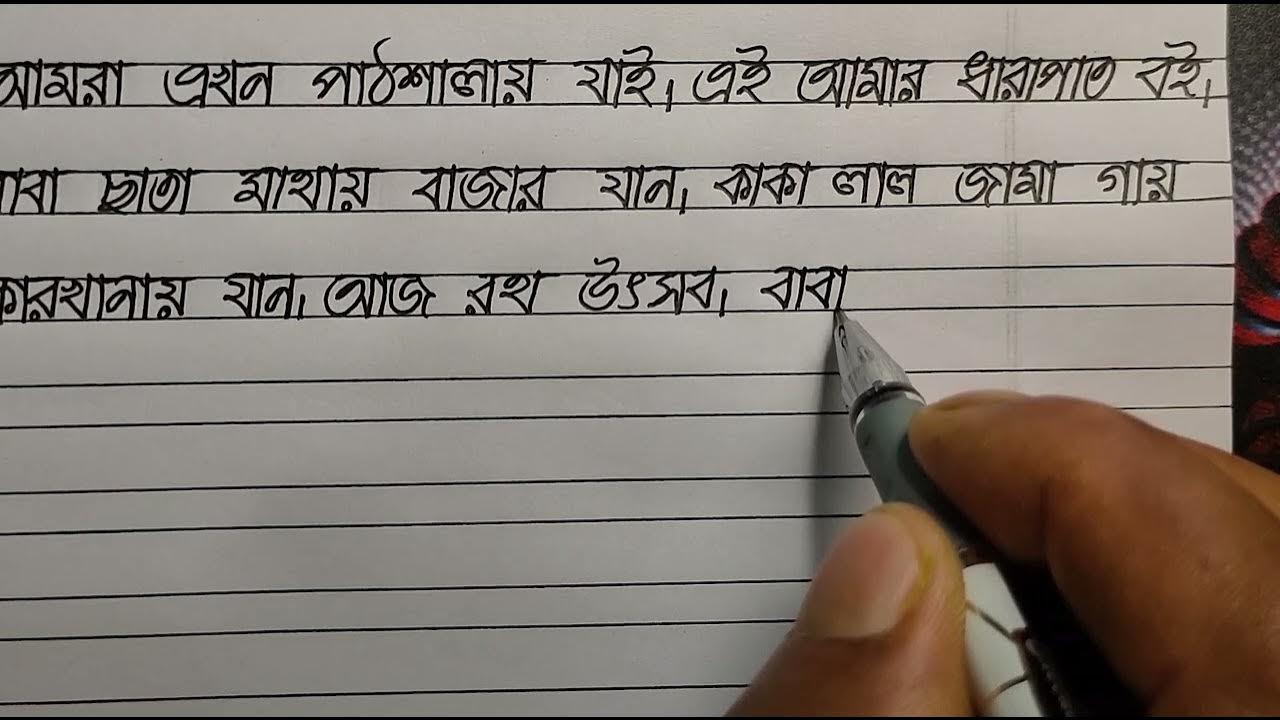 আমরা এখন পাঠশালায় যাই। এই আমার ধারাপাত বই।
বাবা ছাতা মাথায় বাজার যান। কাকা লাল জামা গায়
কারখানায় যান। আজ রথ উৎসব। বাবা